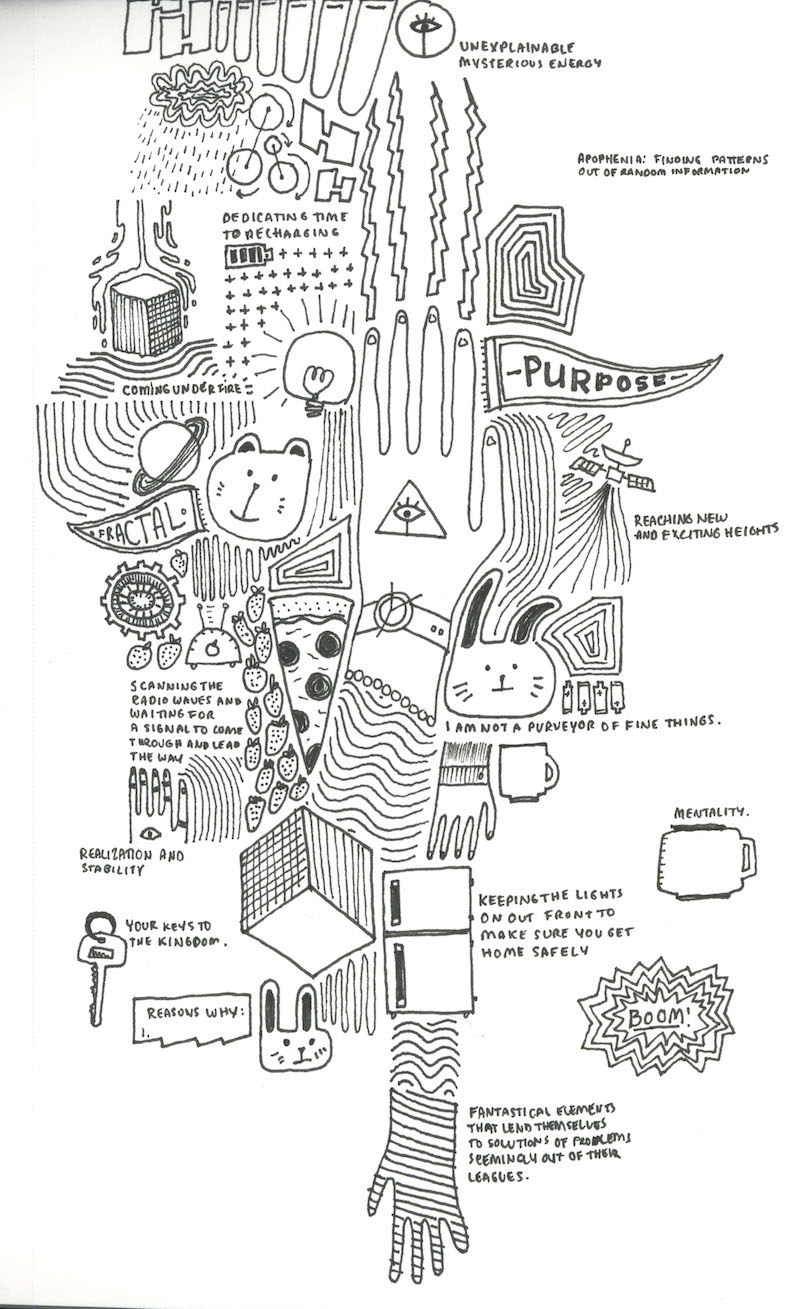 UNEXPLAINABLE
MYSTERIOUS ENERGY
APOPHENIA: FINDING PATTERNS
OUT OF RANDOM INFORMATION
DEDICATING TIME
TO RECHARGING
-PURPOSE-
COMING UNDER FIRE
FRACTAL
REACHING NEW
AND EXCITING HEIGHTS
SCANNING THE
RADIO WAVES AND
WAITING FOR
A SIGNAL TO COME
THROUGH AND LEAD
THE WAY
I AM NOT A PURVEYOR OF FINE THINGS.
MENTALITY.
REALIZATION AND
STABILITY
KEEPING THE LIGHTS
ON OUT FRONT TO
MAKE SURE YOU GET
HOME SAFELY
YOUR KEYS TO
THE KINGDOM.
REASONS WHY:
1.
BOOM!
FANTASTICAL ELEMENTS
THAT LEND THEMSELVES
TO SOLUTIONS OF PROBLEMS
SEEMINGLY OUT OF THEIR
LEAGUES.